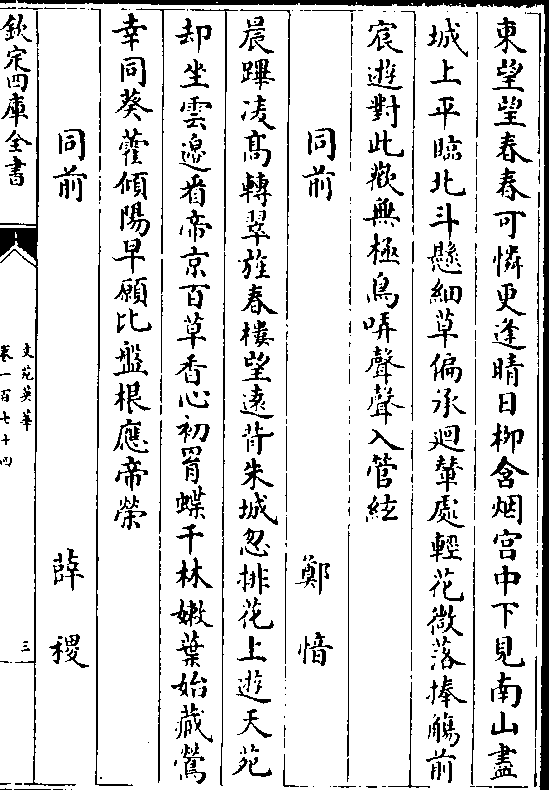 東望望春春可憐更逢晴日柳含烟宫中下見南山盡
城上平臨北斗懸細草偏承迴輦處輕花微落捧觴前
宸遊對此歡無極鳥哢聲聲入管絃
同前　鄭愔
晨蹕凌髙轉翠旌春樓望遠背朱城忽排花上遊天苑
却坐雲邉看帝京百草香心初罥蝶千林嫩葉始藏鶯
幸同葵藿傾陽早願比盤根應帝榮
同前　薛稷
欽定四庫全書
文苑英華
卷一百七十四
三